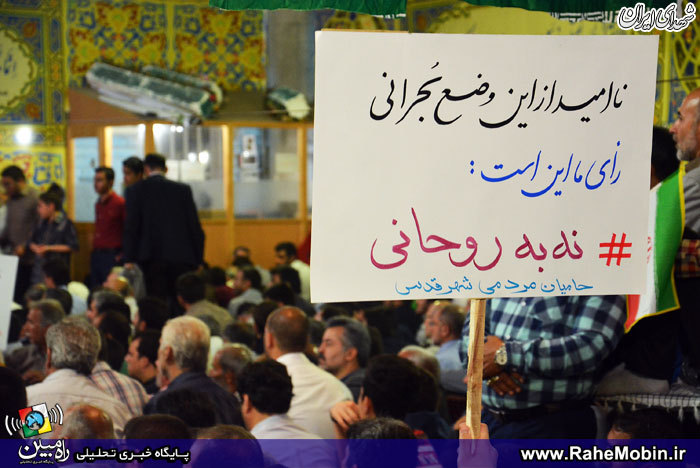 شهدای ایران
ناامید از این وضع بُحرانی
رأی ما این است :
# نه به روحانی
حامیان مردمی شهر قدسی
راه مبین
پایگاه خبری تحلیلی
پایگاه خبری تحلیلی
www.RaheMobin.ir